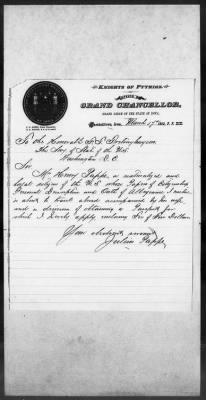 KNIGHTS OF PYTHIAS.
OFFICE
GRAND CHANCELLOR,
GRAND LODGE OF THE STATE OF IOWA,
Iowa, March 17th 188
To the Honorable F. Frelinghuysen
The Secy of State of the U.S.
Washington D.C.
Sir
Mr. Henry Pappe, a naturalized and
legal citizen of the U.S. whose Papers of Citizenship
Personal Description and Oath of Allegiance I enclose
is about to travel abroad accompanied by his wife,
and is desirous of obtaining a Passport for
which I hereby apply enclosing five Dollars
Your obedient servant
Julius Pappe